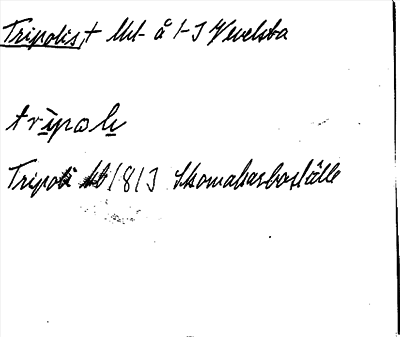 Tripolis, † Utt å 1-3 Vevelsta
tripoli
Tripoli Ub 1813 Skomakarboställe